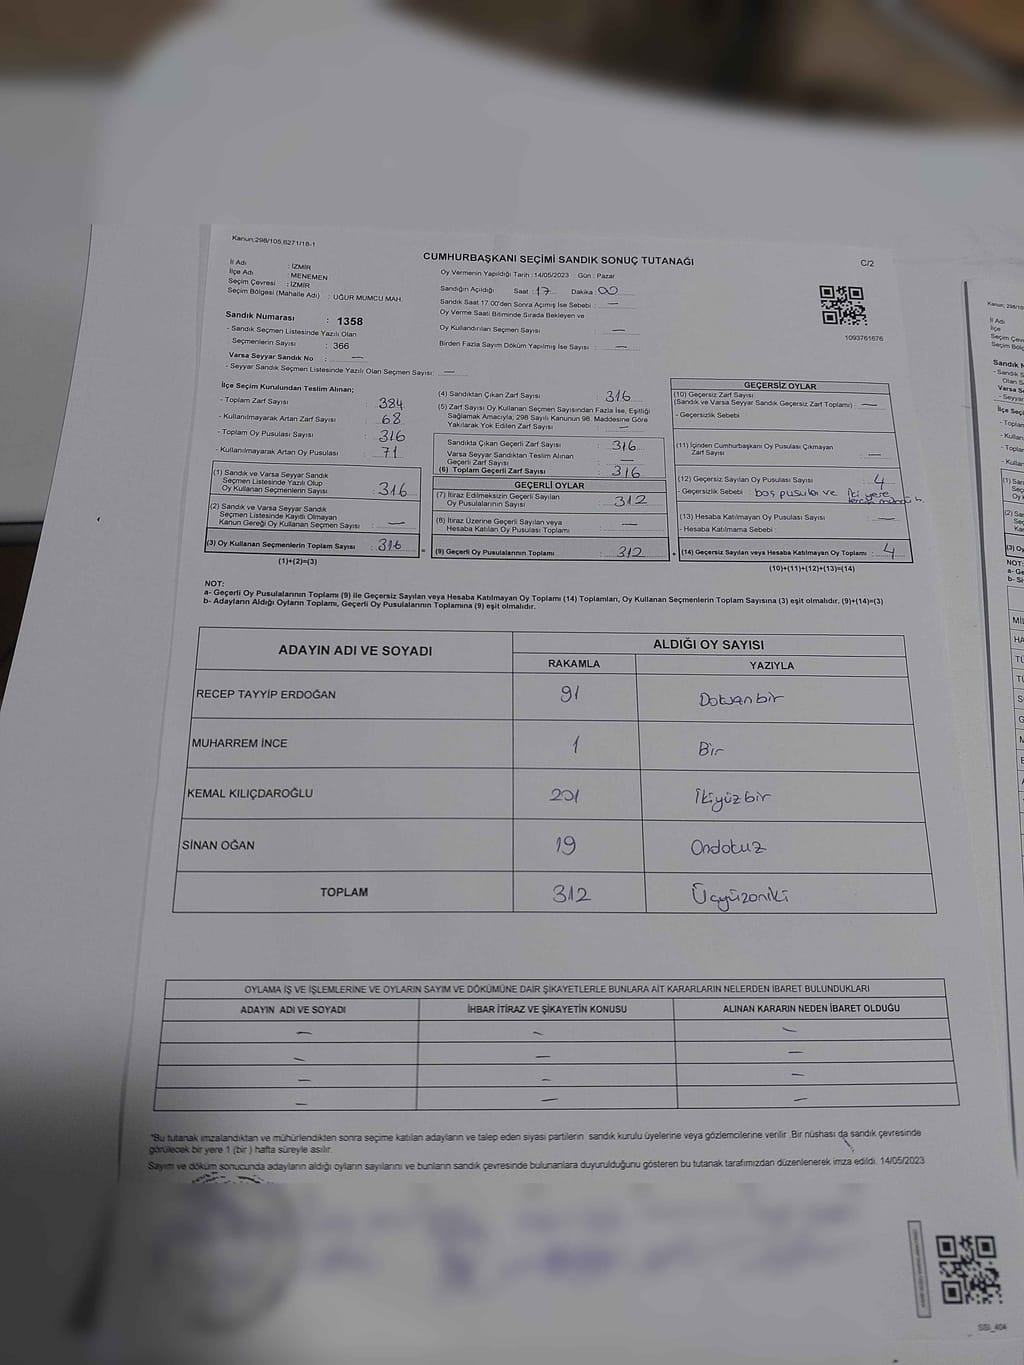 Kanun;298/105,6271/18-1
CUMHURBAŞKANI SEÇİMİ SANDIK SONUÇ TUTANAĞI
C/2
İl Adı : İZMİR
İlçe Adı : MENEMEN
Seçim Çevresi : İZMİR
Seçim Bölgesi (Mahalle Adı) : UĞUR MUMCU MAH.
Oy Vermenin Yapıldığı Tarih :14/05/2023 Gün : Pazar
Sandığın Açıldığı Saat :17 Dakika :00
Sandık Saat 17.00'den Sonra Açılmış İse Sebebi : —
Oy Verme Saati Bitiminde Sırada Bekleyen ve
Oy Kullandırılan Seçmen Sayısı : —
Birden Fazla Sayım Döküm Yapılmış İse Sayısı : —
1093761676
Sandık Numarası : 1358
- Sandık Seçmen Listesinde Yazılı Olan
Seçmenlerin Sayısı : 366
Varsa Seyyar Sandık No : —
- Seyyar Sandık Seçmen Listesinde Yazılı Olan Seçmen Sayısı: —
İlçe Seçim Kurulundan Teslim Alınan;
- Toplam Zarf Sayısı : 384
- Kullanılmayarak Artan Zarf Sayısı : 68
- Toplam Oy Pusulası Sayısı : 316
- Kullanılmayarak Artan Oy Pusulası : 71
(1) Sandık ve Varsa Seyyar Sandık
Seçmen Listesinde Yazılı Olup
Oy Kullanan Seçmenlerin Sayısı : 316
(2) Sandık ve Varsa Seyyar Sandık
Seçmen Listesinde Kayıtlı Olmayan
Kanun Gereği Oy Kullanan Seçmen Sayısı : —
(3) Oy Kullanan Seçmenlerin Toplam Sayısı : 316
(1)+(2)=(3)
(4) Sandıktan Çıkan Zarf Sayısı : 316
(5) Zarf Sayısı Oy Kullanan Seçmen Sayısından Fazla İse, Eşitliği
Sağlamak Amacıyla; 298 Sayılı Kanunun 98. Maddesine Göre
Yakılarak Yok Edilen Zarf Sayısı : —
Sandıkta Çıkan Geçerli Zarf Sayısı : 316
Varsa Seyyar Sandıktan Teslim Alınan
Geçerli Zarf Sayısı : —
(6) Toplam Geçerli Zarf Sayısı : 316
GEÇERLİ OYLAR
(7) İtiraz Edilmeksizin Geçerli Sayılan
Oy Pusulalarının Sayısı : 312
(8) İtiraz Üzerine Geçerli Sayılan veya
Hesaba Katılan Oy Pusulası Toplamı : —
(9) Geçerli Oy Pusulalarının Toplamı : 312
GEÇERSİZ OYLAR
(10) Geçersiz Zarf Sayısı
(Sandık ve Varsa Seyyar Sandık Geçersiz Zarf Toplamı) : —
- Geçersizlik Sebebi :
(11) İçinden Cumhurbaşkanı Oy Pusulası Çıkmayan
Zarf Sayısı : —
(12) Geçersiz Sayılan Oy Pusulası Sayısı : 4
- Geçersizlik Sebebi : boş pusula ve iki yere
(13) Hesaba Katılmayan Oy Pusulası Sayısı : —
- Hesaba Katılmama Sebebi :
(14) Geçersiz Sayılan veya Hesaba Katılmayan Oy Toplamı : 4
(10)+(11)+(12)+(13)=(14)
NOT:
a- Geçerli Oy Pusulalarının Toplamı (9) ile Geçersiz Sayılan veya Hesaba Katılmayan Oy Toplamı (14) Toplamları, Oy Kullanan Seçmenlerin Toplam Sayısına (3) eşit olmalıdır. (9)+(14)=(3)
b- Adayların Aldığı Oyların Toplamı, Geçerli Oy Pusulalarının Toplamına (9) eşit olmalıdır.
ADAYIN ADI VE SOYADI ALDIĞI OY SAYISI
RAKAMLA YAZIYLA
RECEP TAYYİP ERDOĞAN 91 Doksanbir
MUHARREM İNCE 1 Bir
KEMAL KILIÇDAROĞLU 201 İkiyüzbir
SİNAN OĞAN 19 Ondokuz
TOPLAM 312 Üçyüzoniki
OYLAMA İŞ VE İŞLEMLERİNE VE OYLARIN SAYIM VE DÖKÜMÜNE DAİR ŞİKAYETLERLE BUNLARA AİT KARARLARIN NELERDEN İBARET BULUNDUKLARI
ADAYIN ADI VE SOYADI İHBAR İTİRAZ VE ŞİKAYETİN KONUSU ALINAN KARARIN NEDEN İBARET OLDUĞU
— — —
— — —
— — —
— — —
"Bu tutanak imzalandıktan ve mühürlendikten sonra seçime katılan adayların ve talep eden siyasi partilerin sandık kurulu üyelerine veya gözlemcilerine verilir .Bir nüshası da sandık çevresinde
görülecek bir yere 1 (bir ) hafta süreyle asılır.
Sayım ve döküm sonucunda adayların aldığı oyların sayılarını ve bunların sandık çevresinde bulunanlara duyurulduğunu gösteren bu tutanak tarafımızdan düzenlenerek imza edildi. 14/05/2023
SSI_404